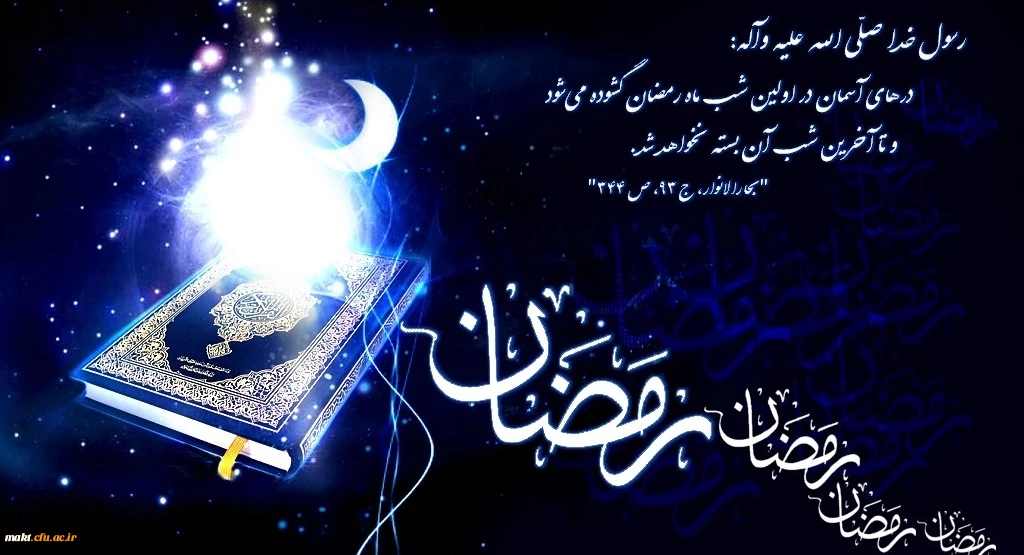 رسول خدا صلّی الله علیه وآله:
درهای آسمان در اولین شب ماه رمضان گشوده می‌شود
و تا آخرین شب آن بسته نخواهد شد.
"بحارالانوار، ج ۹۳، ص ۳۴۴"
رمضان
رمضان
رمضان
رمضان
makt.cfu.ac.ir